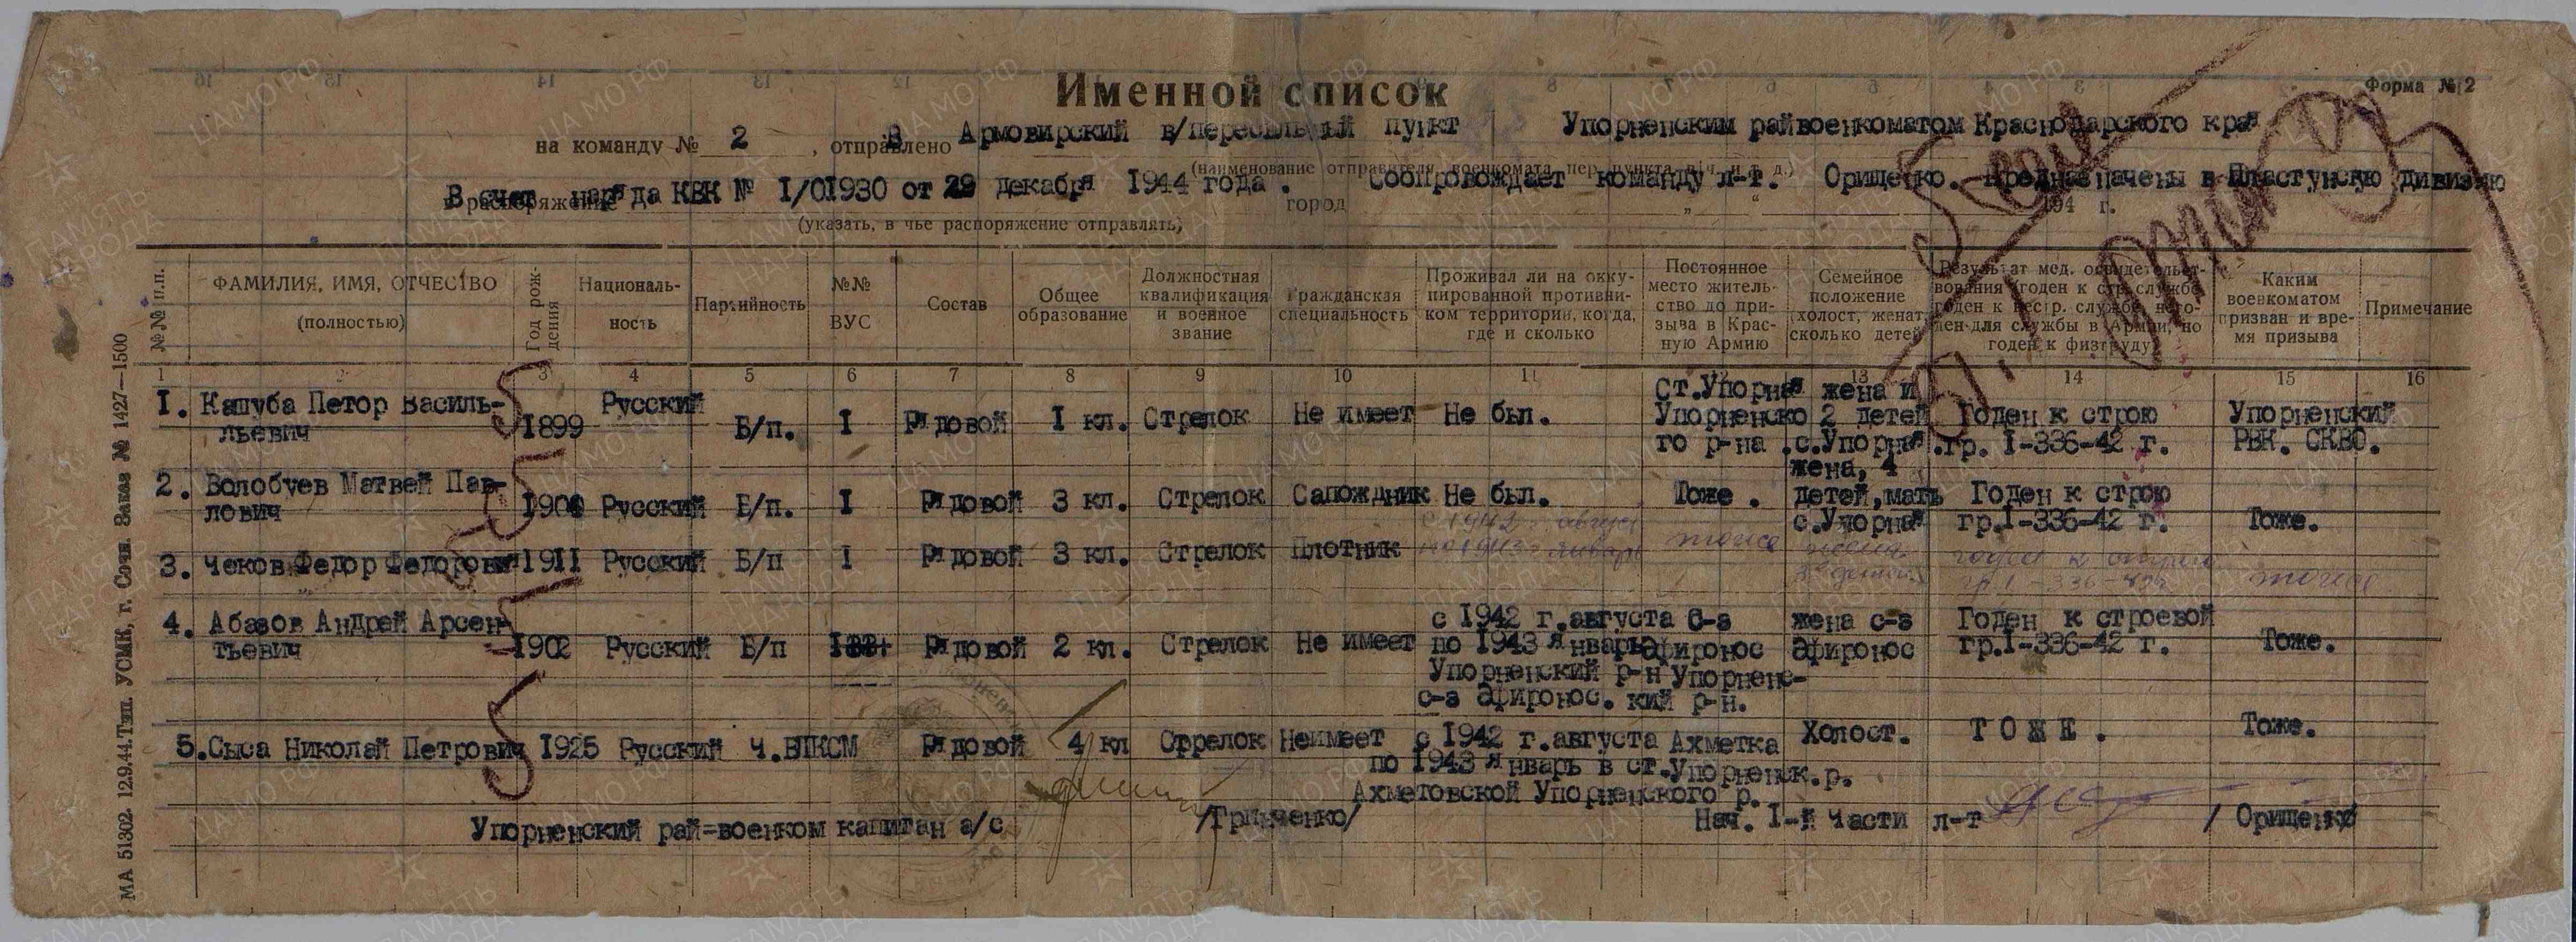 Именной список
Форма № 2
на команду № 2, отправлено В Армовирский в/пересыльный пункт Упорненским райвоенкоматом Краснодарского края
(наименование отправителя, военкомата, пер. пункта, в/ч. и т. д.)
В счет наряда КВК № I/01930 от 29 декабря 1944 года. Соопровождает команду л-т. Орищенко. Предназначены в Пластунскую дивизию
в распоряжение город " " 194 г.
(указать, в чье распоряжение отправлять)
№№ п.п.
ФАМИЛИЯ, ИМЯ, ОТЧЕСТВО (полностью)
Год рождения
Националь-ность
Партийность
№№ ВУС
Состав
Общее образование
Должностная квалификация и военное звание
Гражданская специальность
Проживал ли на окку-пированной противни-ком территории, когда, где и сколько
Постоянное место житель-ство до при-зыва в Крас-ную Армию
Семейное положение (холост, женат, сколько детей)
Результат мед. освидетельст-вования (годен к стр. службе, годен к нестр. службе, него-ден для службы в Армии, но годен к физтруду)
Каким военкоматом призван и вре-мя призыва
Примечание
1 2 3 4 5 6 7 8 9 10 11 12 13 14 15 16
I. Капуба Петор Василь-льевич 1899 Русский Б/п. I Рядовой I кл. Стрелок Не имеет Не был. Ст.Упорная Упорненско го р-на . жена и 2 детей с.Упорная. Годен к строю гр. I-336-42 г. Упорненский РВК. СКВО.
2. Волобуев Матвей Пав-лович 1904 Русский Б/п. I Рядовой 3 кл. Стрелок Сапождник Не был. Тоже . жена, 4 детей,мать с.Упорная Годен к строю гр.I-336-42 г. Тоже.
3. Чеков Федор Федорович 1911 Русский Б/п I Рядовой 3 кл. Стрелок Плотник с 1942 г август по 1943 г январь тоже жена годен к строю гр I-336-42г тоже
4. Абазов Андрей Арсен-тьевич 1902 Русский Б/п Рядовой 2 кл. Стрелок Не имеет с 1942 г.августа по 1943 январь Упорненский р-н с-з Эфиронос. С-з Эфиронос Упорненс-кий р-н. жена с-з Эфиронос Годен к строевой гр.I-336-42 г. Тоже.
5. Сыса Николай Петрович 1925 Русский Ч.ВЛКСМ Рядовой 4 кл Стрелок Неимеет с 1942 г.августа по 1943 январь в ст. Ахметовской Упорненского р. Ахметка Упорненск.р. Холост. ТОЖЕ. Тоже.
Упорненский рай=военком капитан а/с /Тринченко/ Нач. I-й Части л-т / Орищенко
МА 51302. 12.9.44. Тип. УСМК, г. Сочи. Заказ № 1427—1500